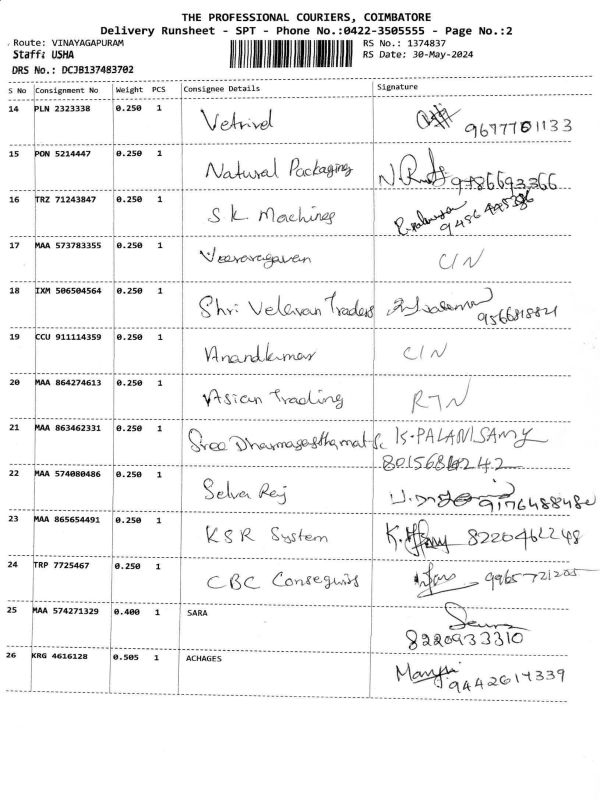 THE PROFESSIONAL COURIERS, COIMBATORE
Delivery Runsheet - SPT - Phone No.:0422-3505555 - Page No.:2
Route: VINAYAGAPURAM RS No.: 1374837
Staff: USHA RS Date: 30-May-2024
DRS No.: DCJB137483702
S No Consignment No Weight PCS Consignee Details Signature
14 PLN 2323338 0.250 1 Vetrivel
15 PON 5214447 0.250 1 Natural Packaging 9786693366
16 TRZ 71243847 0.250 1 S K Machines
17 MAA 573783355 0.250 1 Veeraragavan C/N
18 IXM 506504564 0.250 1 Shri Velavan Traders
19 CCU 911114359 0.250 1 Anandkumar C/N
20 MAA 864274613 0.250 1 Asian Trading RTN
21 MAA 863462331 0.250 1 Sree K-PALANISAMY
22 MAA 574080486 0.250 1 Selva Raj
23 MAA 865654491 0.250 1 KSR System 8220462248
24 TRP 7725467 0.250 1 CBC 9965721205
25 MAA 574271329 0.400 1 SARA
8220933310
26 KRG 4616128 0.505 1 ACHAGES
9442614339